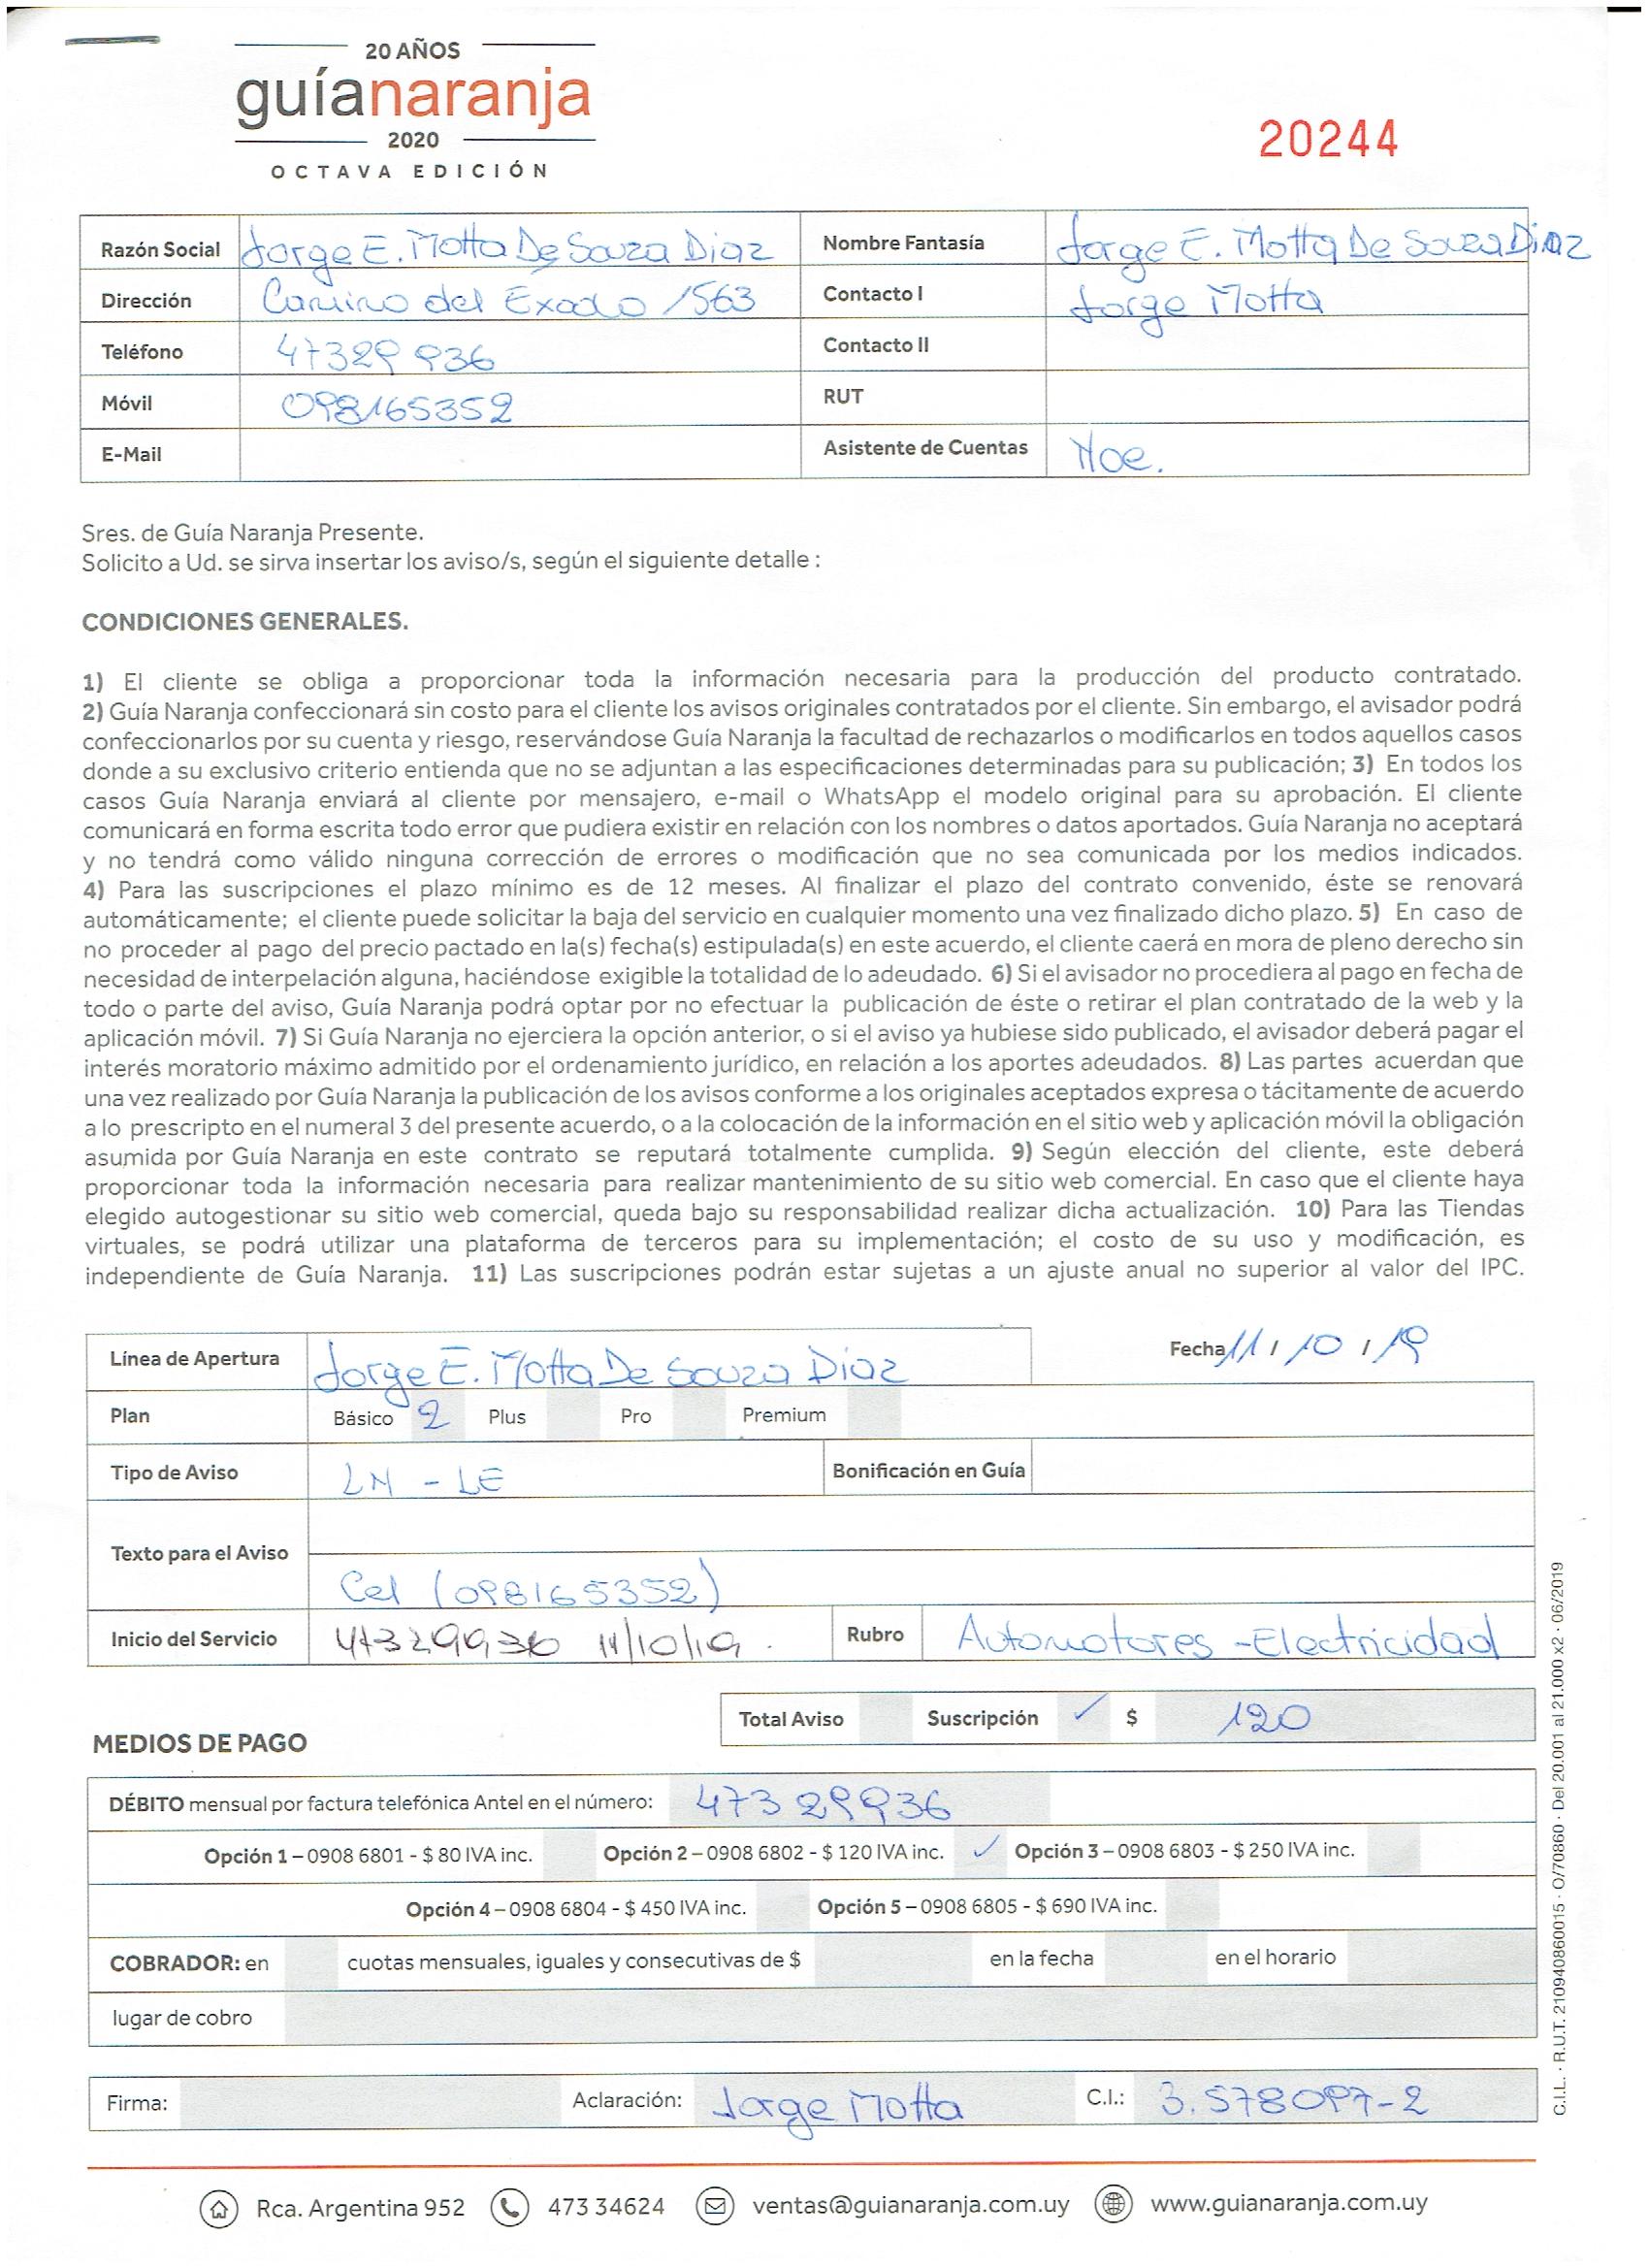 20 AÑOS
guíanaranja
2020
OCTAVA EDICIÓN
20244
Razón Social Jorge E. Motta De Souza Diaz Nombre Fantasía Jorge E. Motta De Souza Diaz
Dirección Camino del Exodo 1563 Contacto I Jorge Motta
Teléfono 47329936 Contacto II
Móvil 098165352 RUT
E-Mail Asistente de Cuentas Noe.
Sres. de Guía Naranja Presente.
Solicito a Ud. se sirva insertar los aviso/s, según el siguiente detalle :
CONDICIONES GENERALES.
1) El cliente se obliga a proporcionar toda la información necesaria para la producción del producto contratado.
2) Guía Naranja confeccionará sin costo para el cliente los avisos originales contratados por el cliente. Sin embargo, el avisador podrá
confeccionarlos por su cuenta y riesgo, reservándose Guía Naranja la facultad de rechazarlos o modificarlos en todos aquellos casos
donde a su exclusivo criterio entienda que no se adjuntan a las especificaciones determinadas para su publicación; 3) En todos los
casos Guía Naranja enviará al cliente por mensajero, e-mail o WhatsApp el modelo original para su aprobación. El cliente
comunicará en forma escrita todo error que pudiera existir en relación con los nombres o datos aportados. Guía Naranja no aceptará
y no tendrá como válido ninguna corrección de errores o modificación que no sea comunicada por los medios indicados.
4) Para las suscripciones el plazo mínimo es de 12 meses. Al finalizar el plazo del contrato convenido, éste se renovará
automáticamente; el cliente puede solicitar la baja del servicio en cualquier momento una vez finalizado dicho plazo. 5) En caso de
no proceder al pago del precio pactado en la(s) fecha(s) estipulada(s) en este acuerdo, el cliente caerá en mora de pleno derecho sin
necesidad de interpelación alguna, haciéndose exigible la totalidad de lo adeudado. 6) Si el avisador no procediera al pago en fecha de
todo o parte del aviso, Guía Naranja podrá optar por no efectuar la publicación de éste o retirar el plan contratado de la web y la
aplicación móvil. 7) Si Guía Naranja no ejerciera la opción anterior, o si el aviso ya hubiese sido publicado, el avisador deberá pagar el
interés moratorio máximo admitido por el ordenamiento jurídico, en relación a los aportes adeudados. 8) Las partes acuerdan que
una vez realizado por Guía Naranja la publicación de los avisos conforme a los originales aceptados expresa o tácitamente de acuerdo
a lo prescripto en el numeral 3 del presente acuerdo, o a la colocación de la información en el sitio web y aplicación móvil la obligación
asumida por Guía Naranja en este contrato se reputará totalmente cumplida. 9) Según elección del cliente, este deberá
proporcionar toda la información necesaria para realizar mantenimiento de su sitio web comercial. En caso que el cliente haya
elegido autogestionar su sitio web comercial, queda bajo su responsabilidad realizar dicha actualización. 10) Para las Tiendas
virtuales, se podrá utilizar una plataforma de terceros para su implementación; el costo de su uso y modificación, es
independiente de Guía Naranja. 11) Las suscripciones podrán estar sujetas a un ajuste anual no superior al valor del IPC.
Línea de Apertura Jorge E. Motta De Souza Diaz Fecha 11 / 10 / 19
Plan Básico 2 Plus Pro Premium
Tipo de Aviso LN - LE Bonificación en Guía
Texto para el Aviso
Cel (098165352)
Inicio del Servicio 47329936 11/10/19. Rubro Automotores - Electricidad
Total Aviso Suscripción ✓ $ 120
MEDIOS DE PAGO
DÉBITO mensual por factura telefónica Antel en el número: 473 29936
Opción 1 – 0908 6801 - $ 80 IVA inc. Opción 2 – 0908 6802 - $ 120 IVA inc. ✓ Opción 3 – 0908 6803 - $ 250 IVA inc.
Opción 4 – 0908 6804 - $ 450 IVA inc. Opción 5 – 0908 6805 - $ 690 IVA inc.
COBRADOR: en cuotas mensuales, iguales y consecutivas de $ en la fecha en el horario
lugar de cobro
Firma: Aclaración: Jorge Motta C.I.: 3.578097-2
Rca. Argentina 952 473 34624 ventas@guianaranja.com.uy www.guianaranja.com.uy
C.I.L. · R.U.T. 210940860015 · O/70860 · Del 20.001 al 21.000 x2 · 06/2019